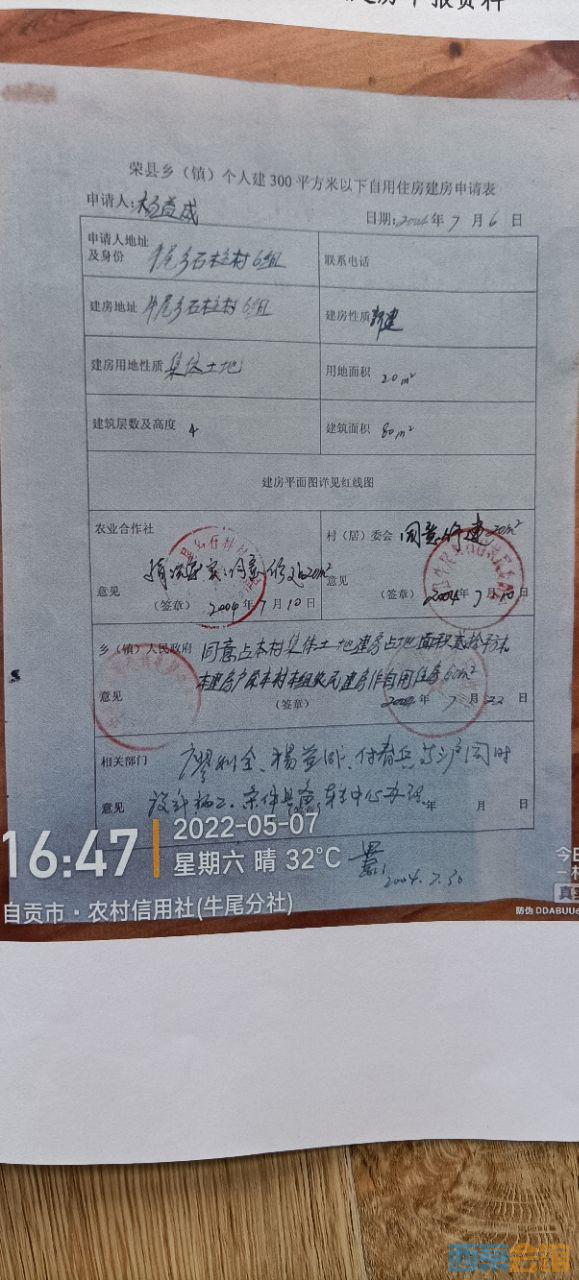 荣县乡（镇）个人建300平方米以下自用住房建房申请表
申请人：杨益成
日期：2004年7月6日
申请人地址及身份 牛尾乡石柱村6组
联系电话
建房地址 牛尾乡石柱村6组
建房性质 新建
建房用地性质 集体土地
用地面积 20m²
建筑层数及高度 4
建筑面积 80m²
建房平面图详见红线图
农业合作社
村（居）委会 同意修建20m²
意见
意见
（签章） 2004年7月10日
（签章） 2004年7月10日
乡（镇）人民政府 同意占本村集体土地建房占地面积贰拾平方米
本建房户属本村本组农民建房作自用住房60m²
意见
（签章） 年7月22日
相关部门 同时
意见 年 月 日
2004.7.30
16:47
2022-05-07
星期六 晴 32°C
自贡市·农村信用社(牛尾分社)
防伪 DDABUU